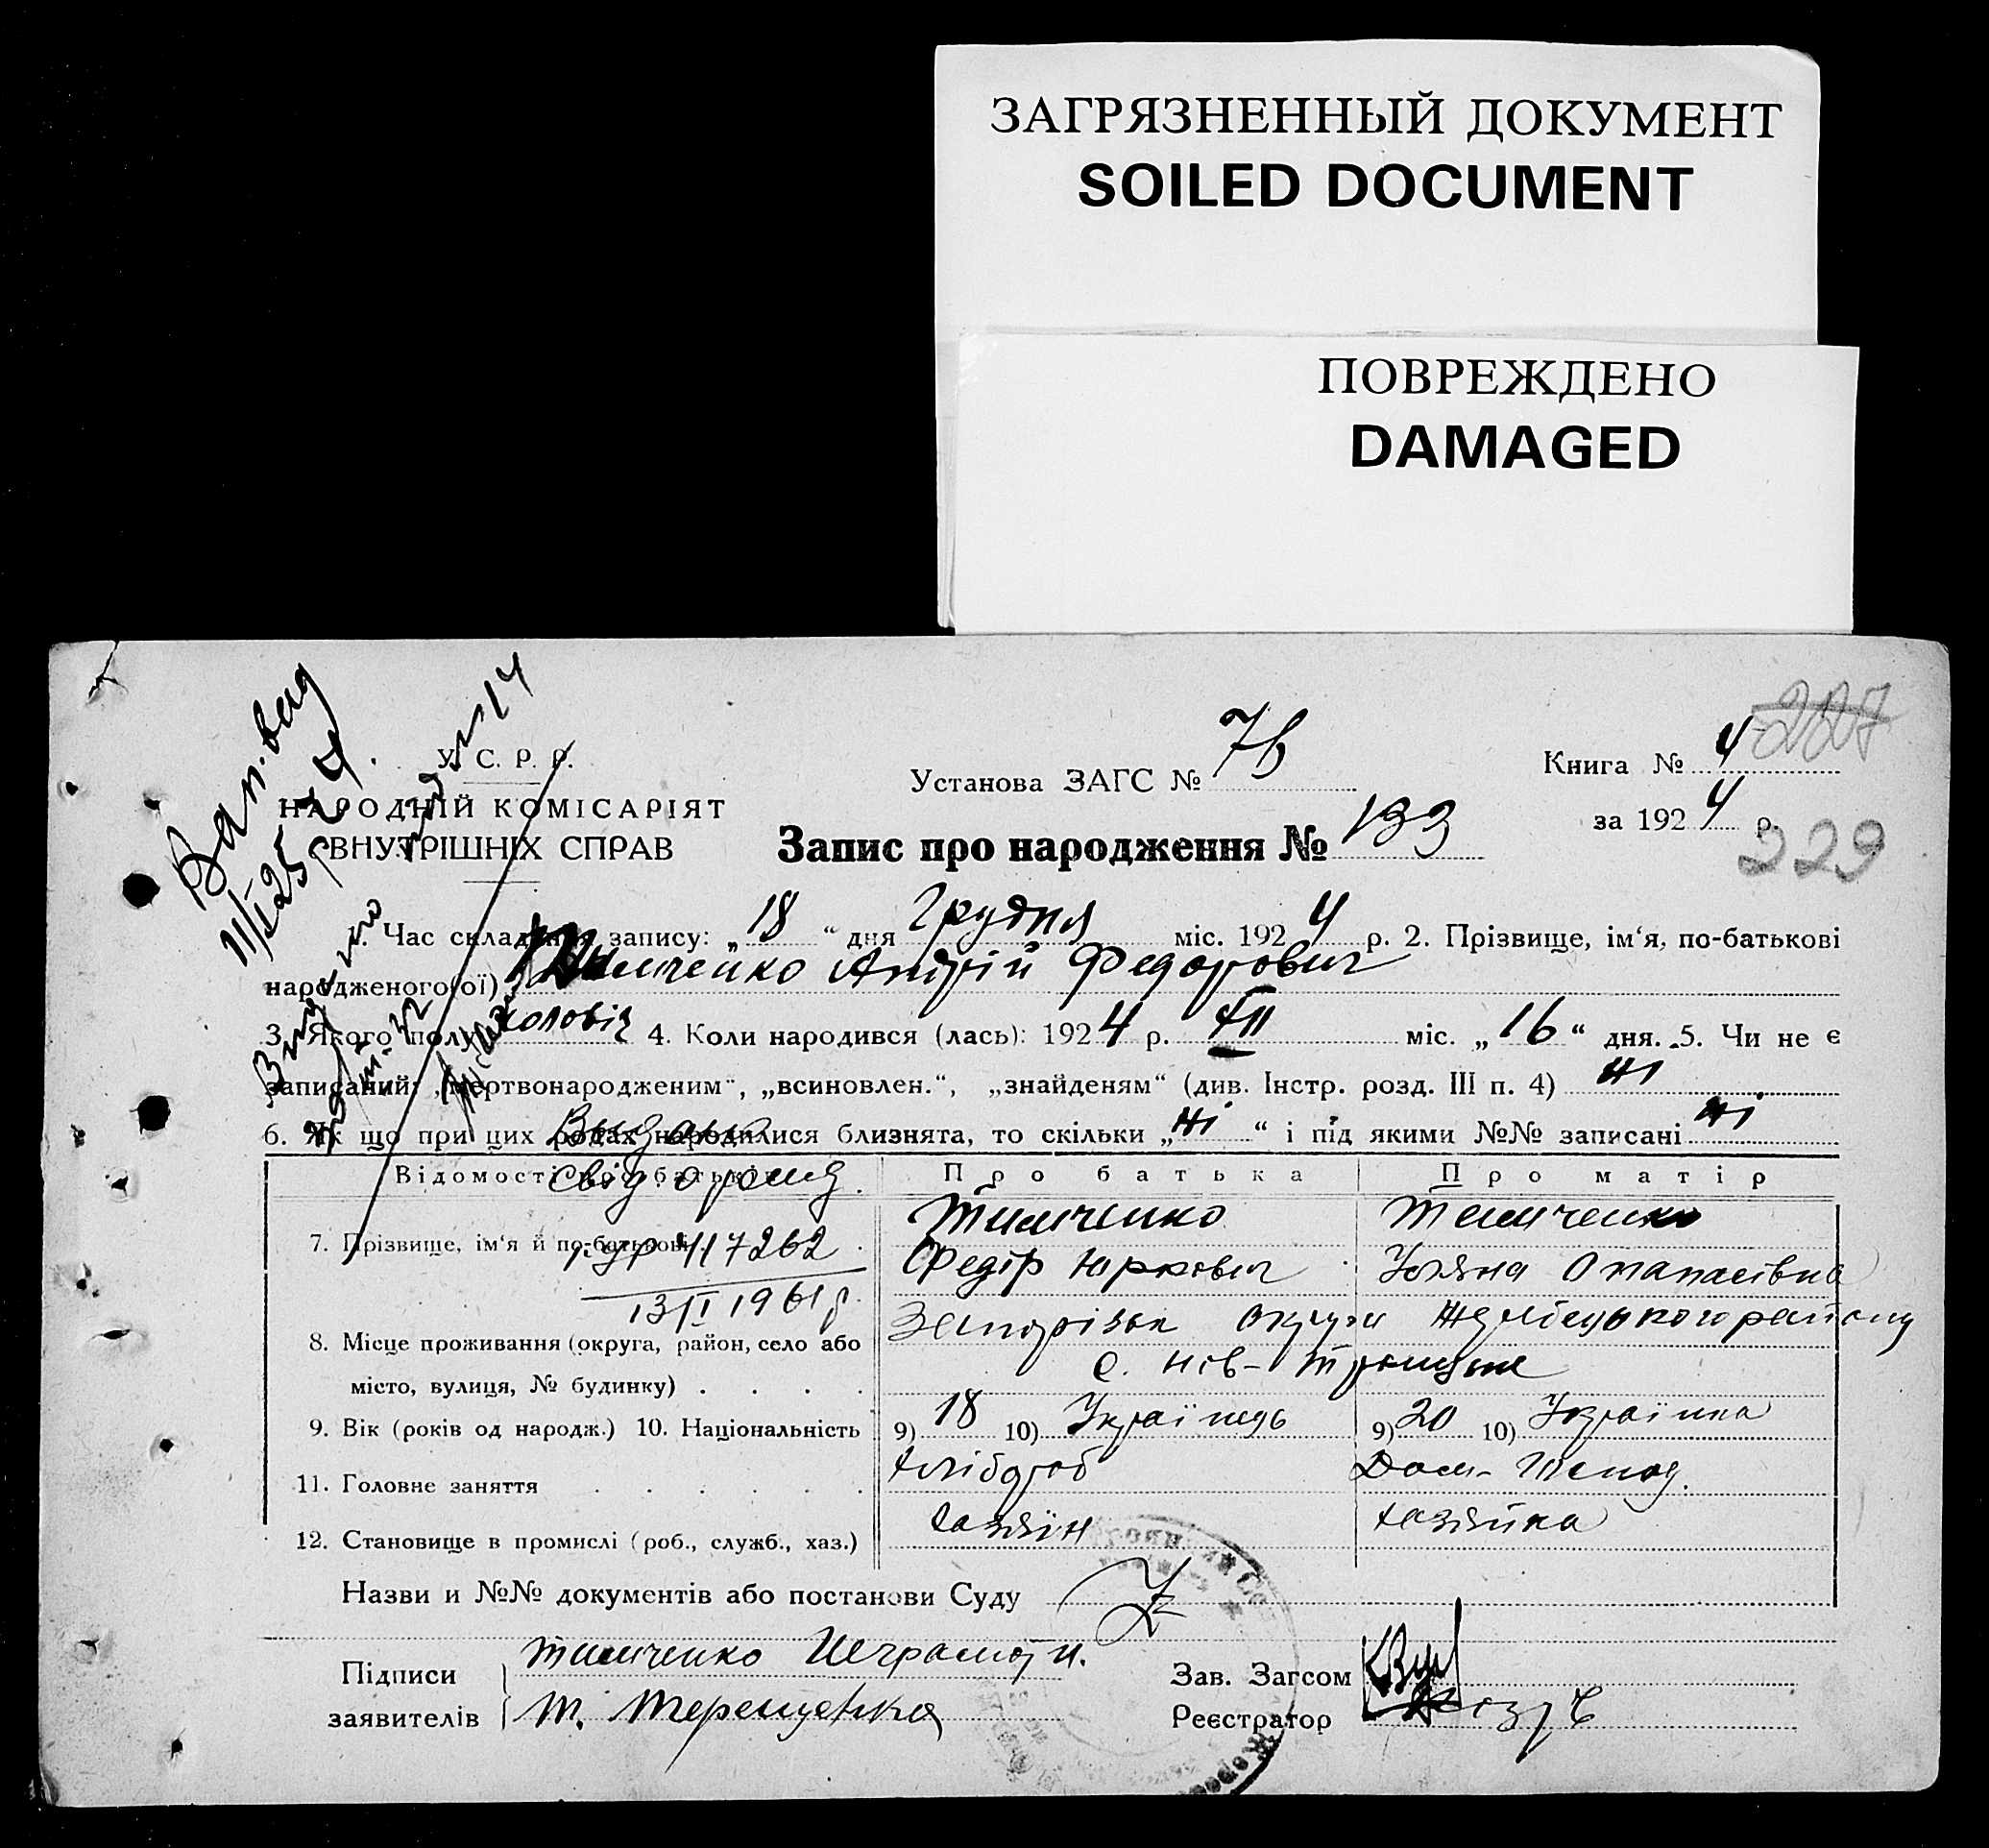 ЗАГРЯЗНЕННЫЙ ДОКУМЕНТ
SOILED DOCUMENT
ПОВРЕЖДЕНО
DAMAGED
227
У. С. Р. Р.
НАРОДНІЙ КОМІСАРІЯТ
ВНУТРІШНІХ СПРАВ
Установа ЗАГС № 76
Книга № 4
за 1924 р.
229
Запис про народження № 133
1. Час складення запису: „18“ дня Грудня міс. 1924 р. 2. Прізвище, ім‘я, по-батькові
народженого(ої) Тимченко Андрій Федорович
3. Якого полу чоловіч 4. Коли народився (лась): 1924 р. XII міс. „16“ дня. 5. Чи не є
записаний: „мертвонародженим“, „всиновлен.“, „знайденям“ (див. Інстр. розд. III п. 4) ні
6. Як що при цих родах народилися близнята, то скільки „ні“ і під якими №№ записані ні
Видано
свід. о рожд.
117262
13/II 1961 р.
Відомості про батьків Про батька Про матір
7. Прізвище, ім‘я й по-батькові Тимченко Тимченко
Федір Юркович Уляна Опанасівна
8. Місце проживання (округа, район, село або Запорізьк округи Жеребецького району
місто, вулиця, № будинку) с. Нов-Троицьке
9. Вік (років од народж.) 10. Національність 9) 18 10) Українець 9) 20 10) Українка
11. Головне заняття Хлібороб Дом-
12. Становище в промислі (роб., служб., хаз.) Хазяїн Хазяйка
Назви и №№ документів або постанови Суду Z
Підписи Тимченко Неграмотн.
заявителів Т. Терещенко
Зав. Загсом
Реєстратор